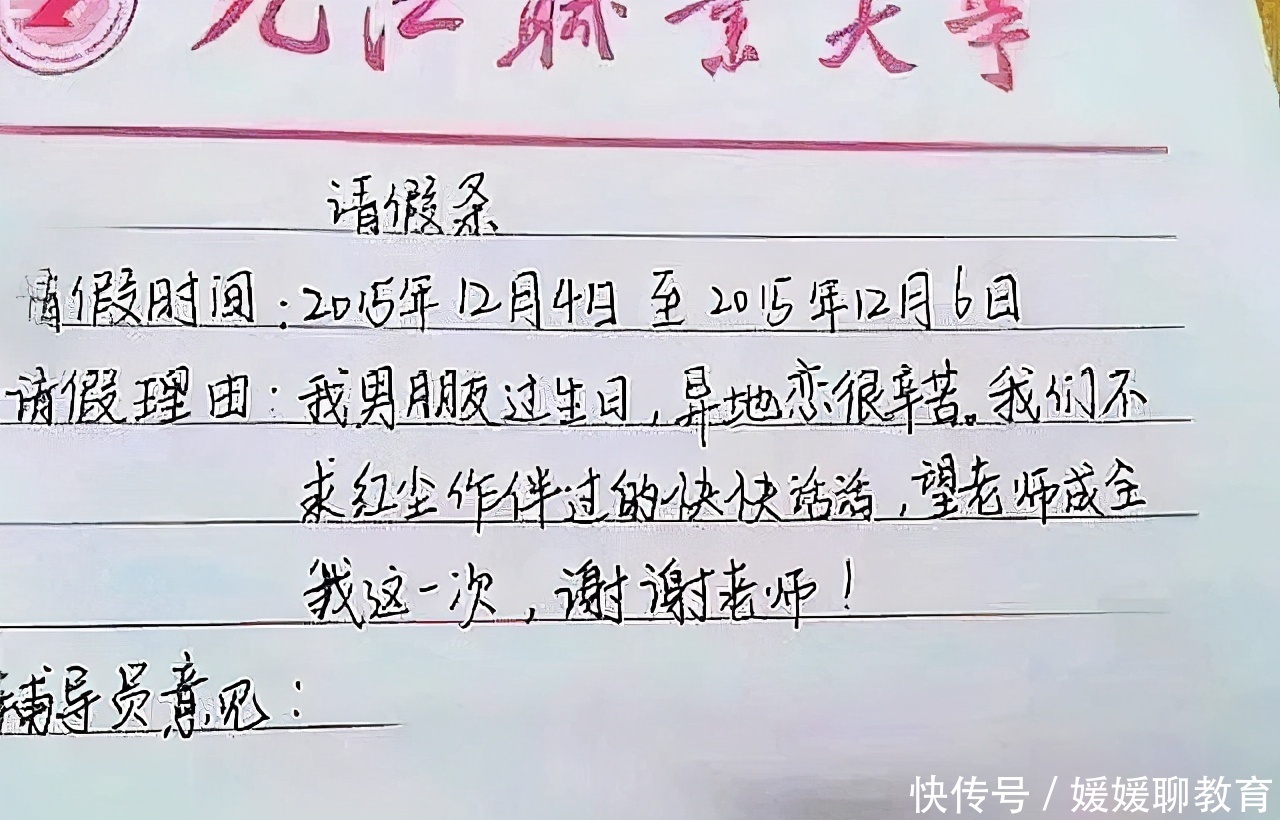 职业大学
请假条
请假时间：2015年12月4日 至 2015年12月6日
请假理由：我男朋友过生日，异地恋很辛苦。我们不
求红尘作伴过的快快活活，望老师成全
我这一次，谢谢老师！
辅导员意见：
快传号 / 媛媛聊教育